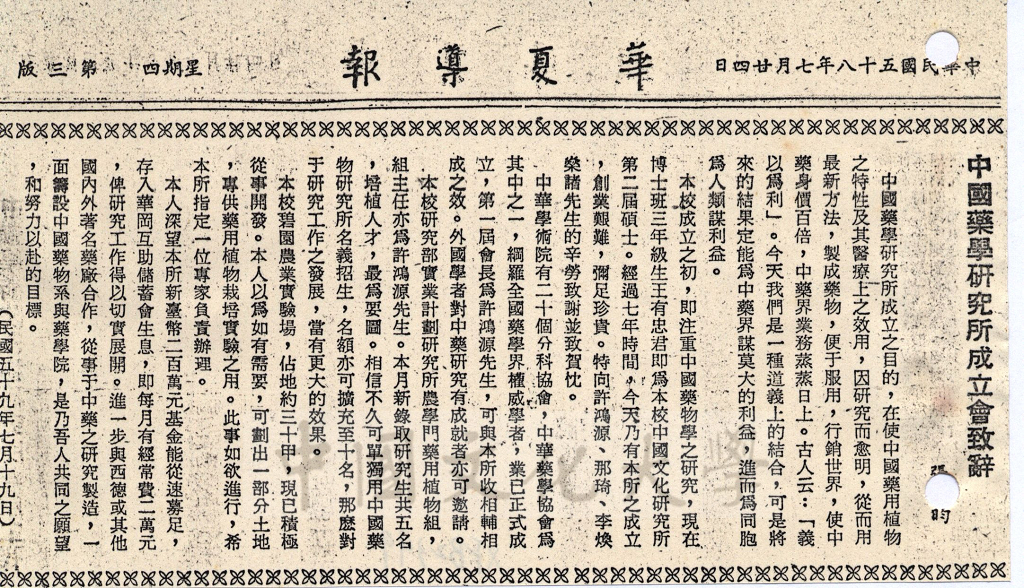 中華民國五十八年七月廿四日
華夏導報
星期四
第三版
中國藥學研究所成立會致辭
張 昀
中國藥學研究所成立之目的，在使中國藥用植物
之特性及其醫療上之效用，因研究而愈明，從而用
最新方法，製成藥物，便于服用，行銷世界，使中
藥身價百倍，中藥界業務蒸蒸日上。古人云：「義
以爲利」。今天我們是一種道義上的結合，可是將
來的結果定能爲中藥界謀莫大的利益，進而爲同胞
爲人類謀利益。
本校成立之初，即注重中國藥物學之研究，現在
博士班三年級生王有忠君即爲本校中國文化研究所
第二屆碩士。經過七年時間，今天乃有本所之成立
，創業艱難，彌足珍貴。特向許鴻源、那琦、李煥
燊諸先生的辛勞致謝並致賀忱。
中華學術院有二十個分科協會，中華藥學協會爲
其中之一，綱羅全國藥學界權威學者，業已正式成
立，第一屆會長爲許鴻源先生，可與本所收相輔相
成之效。外國學者對中藥研究有成就者亦可邀請。
本校研究部實業計劃研究所農學門藥用植物組，
組主任亦爲許鴻源先生。本月新錄取研究生共五名
，培植人才，最爲要圖。相信不久可單獨用中國藥
物研究所名義招生，名額亦可擴充至十名，那麼對
于研究工作之發展，當有更大的效果。
本校碧園農業實驗場，佔地約三十甲，現已積極
從事開發。本人以爲如有需要，可劃出一部分土地
，專供藥用植物栽培實驗之用。此事如欲進行，希
本所指定一位專家負責辦理。
本人深望本所新臺幣二百萬元基金能從速募足，
存入華岡互助儲蓄會生息，即每月有經常費二萬元
，俾研究工作得以切實展開。進一步與西德或其他
國內外著名藥廠合作，從事于中藥之研究製造，一
面籌設中國藥物系與藥學院，是乃吾人共同之願望
，和努力以赴的目標。
（民國五十九年七月十九日）
中國文化大學